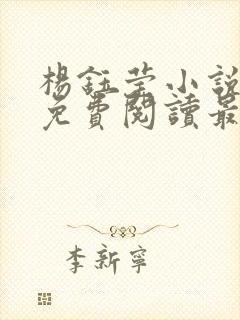 楊鈺莹小說
免費閱讀最
李新寧